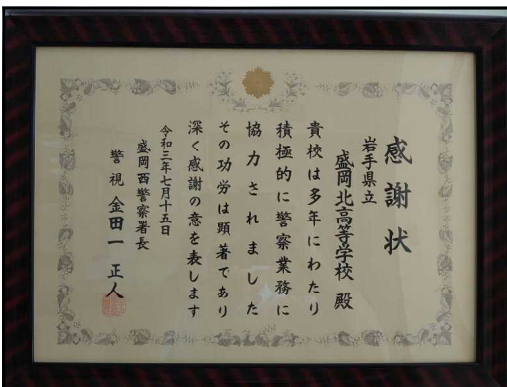 感謝状
岩手県立
盛岡北高等学校 殿
貴校は多年にわたり
積極的に警察業務に
協力されました
その功労は顕著であり
深く感謝の意を表します
令和三年七月十五日
盛岡西警察署長
警視 金田一 正人